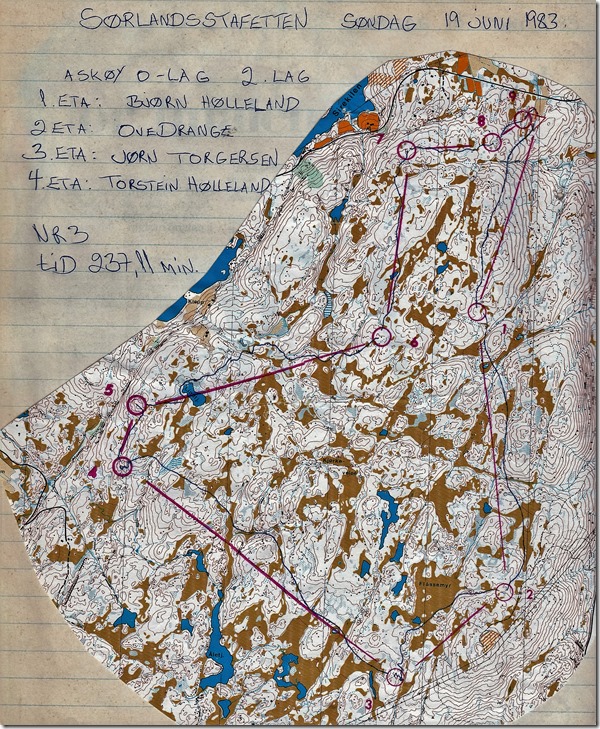 SØRLANDSSTAFETTEN SØNDAG 19 JUNI 1983.
ASKØY O-LAG 2. LAG
1. ETA: BJØRN HØLLELAND
2 ETA: OVE DRANGE
3. ETA: JØRN TORGERSEN
4. ETA: TORSTEIN HØLLELAND
NR 3
tiD 237,11 MIN.
9
8
7
1
6
5
4
2
3